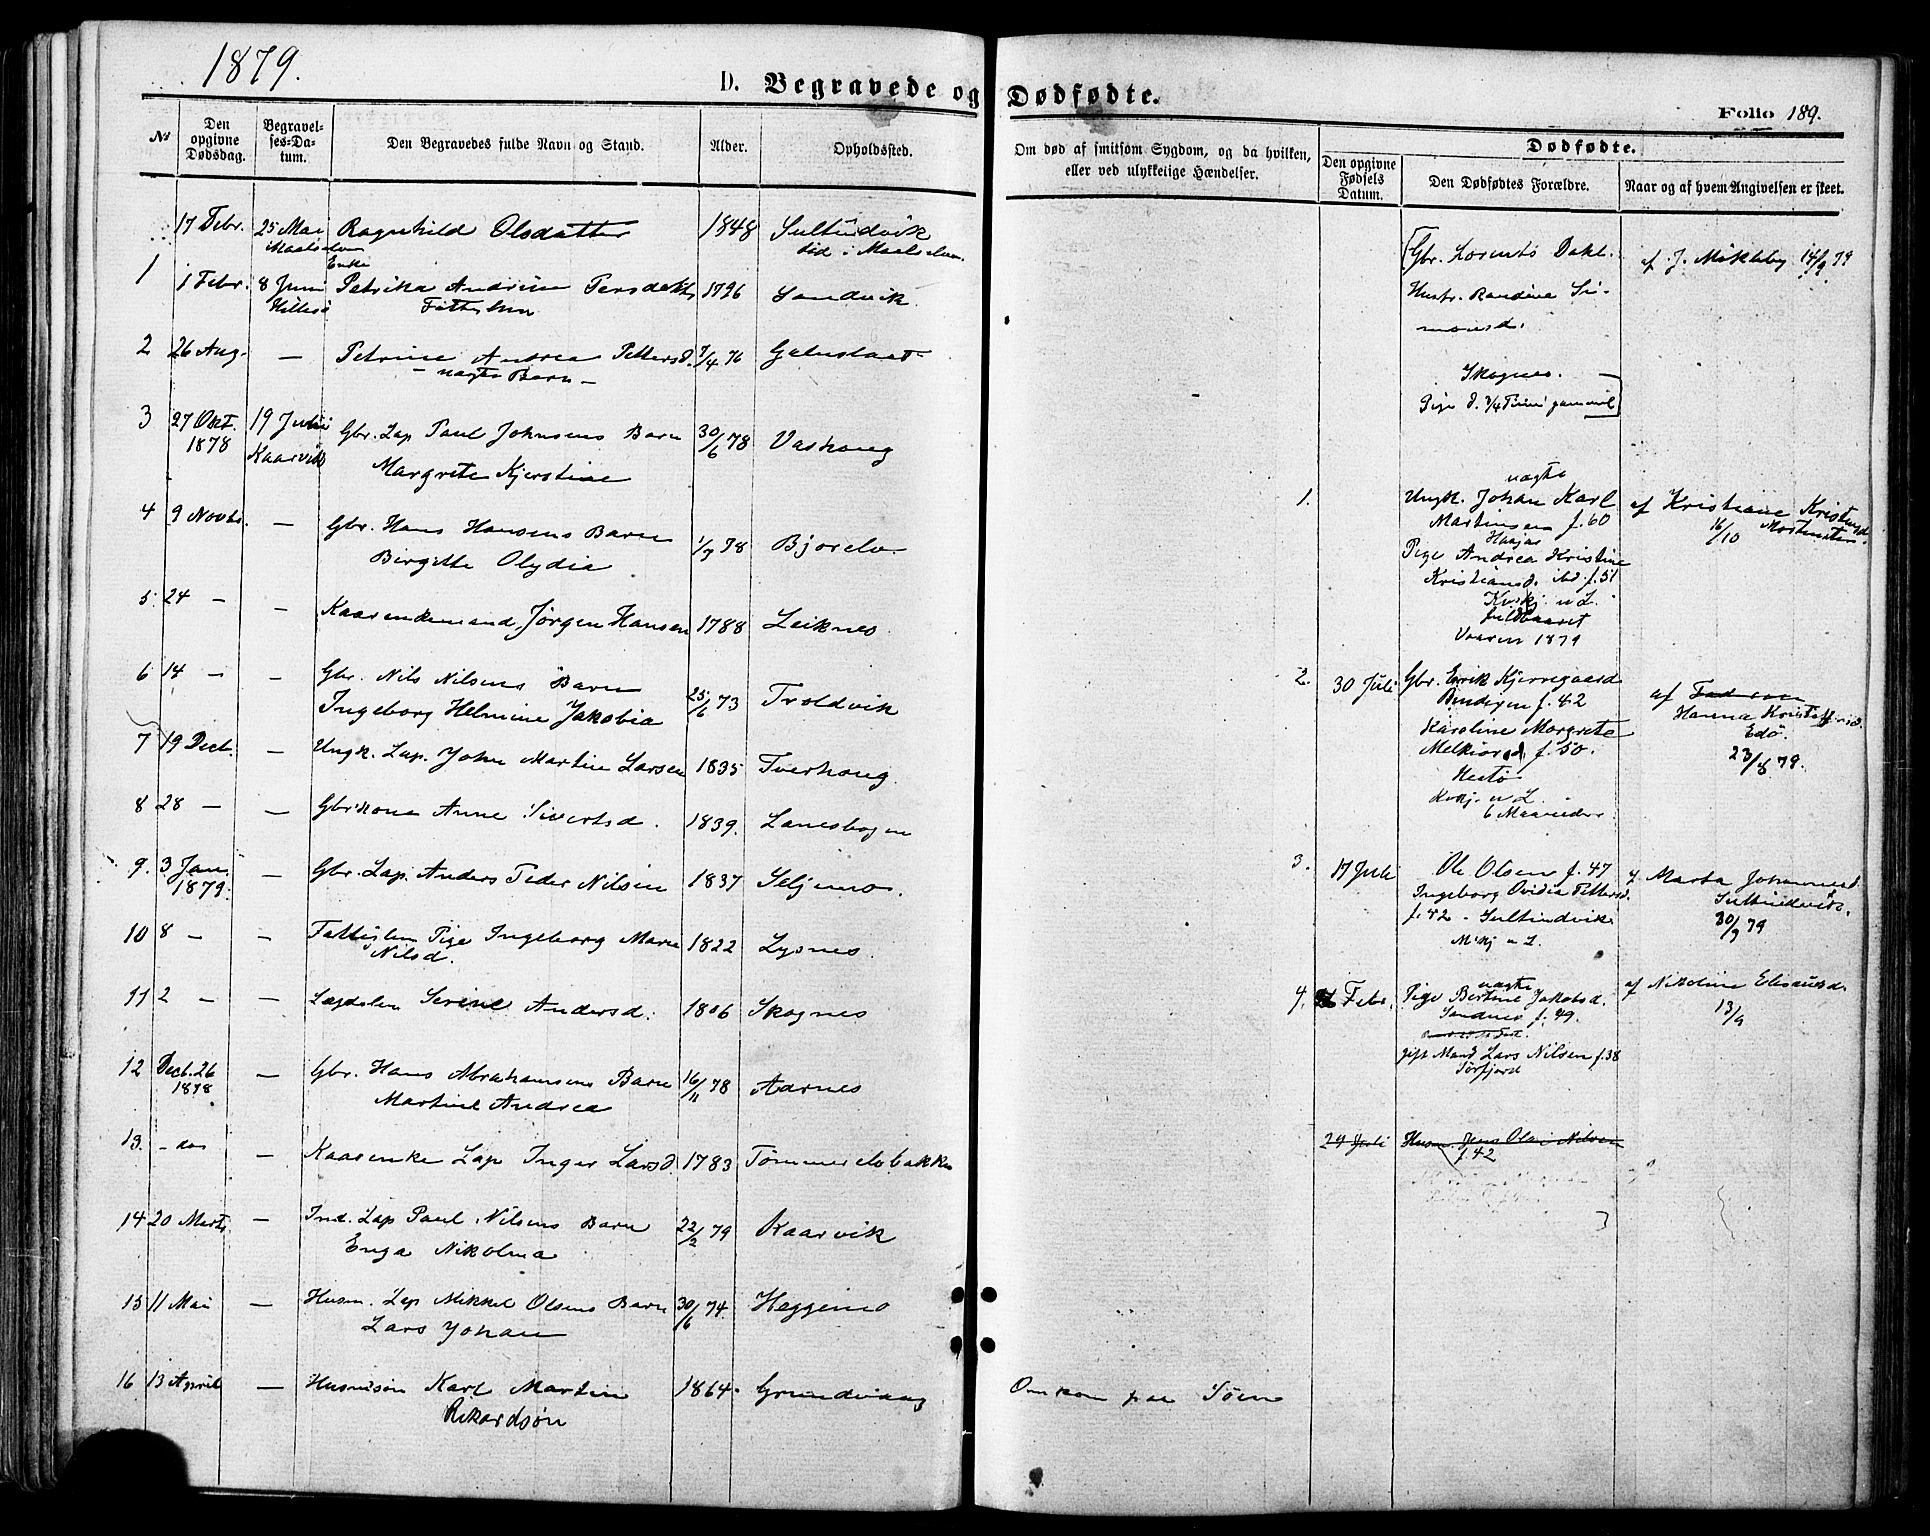 1879.
D. Begravede og Dødfødte.
Folio 189.
No
Den opgivne Dødsdag.
Begravelses-Datum.
Den Begravedes fulde Navn og Stand.
Alder.
Opholdssted.
Om død af smitsom Sygdom, og da hvilken,
eller ved ulykkelige Hændelser.
Dødfødte.
Den opgivne Fødsels Datum.
Den Dødfødtes Forældre.
Naar og af hvem Angivelsen er skeet.
17 Febr. 25 Mai Ragnhild Olsdatter 1848 Sultindvik
Maalselven tid. i Maalselven
Enke
1 1 Febr. 8 Juni Petrika Andrine Persdatt 1796 Sandvik.
Hillesø Fattiglem
2 26 Aug. — Petrine Andrea Pettersd. 7/4 76
— uægte Barn —
3 27 Okt. 1878 19 Juli Gbr. Lap Paul Johnsens Barn 30/6 78 Vashaug
Kaarvik Margrete Kjerstine
4 9 Novbr. — Gbr. Hans Hansens Barn 1/7 78 Bjorelv
Birgitte Olydia
5. 24 — — Kaarenkemand Jørgen Hansen 1788 Leiknes
6 14 — — Gbr. Nils Nilsens Barn 25/6 73 Troldvik
Ingeborg Helmine Jakobia
7 19 Decb. — Ungk. Lap. John Martin Larsen 1835 Tverhaug.
8 28 — — Gbrkone Anne Sivertsd. 1839. Lanesbogen
9. 3 Jan. 1879. — Gbr. Lap. Anders Peder Nilsen 1837 Seljemo.
10 8 — — Fattiglem Pige Ingeborg Marie 1822 Lysnes
Nilsd.
11 2 — — Lægdslem Serine Andersd. 1806 Skognes
12 Decb. 26 1878 — Gbr. Hans Abrahamsens Barn 16/11 78 Aarnes
Martine Andrea
13. — do — Kaarenke Lap Inger Larsd. 1783 Tømmerelvbakke
14 20 Marts — Ind. Lap Paul Nilsens Barn 22/2 79 Kaarvik
Enga Nikolina
15 11 Mai — Husm. Lap Mikkel Olsens Barn 30/6 74. Heggemo
Lars Johan
16 13 April — Husmsøn Karl Martin 1864. Grundvaag Omkom paa Søen
Rikardsøn
Gbr. Lorents Dahl. af J. Mikkleby 14/9 79
Hustr. Randine Simonsd.
Skognes. —
Pige d. 3/4 Time gammel
uægte
1. Ungk. Johan Karl af Kristiane Kristensd.
Martinsen f. 60 16/10
Haajar
Pige Andrea Kristine
Kristiansd. ibd. f. 51
Kvkj. u L.
fuldbaaret
Vaaren 1879
2. 30 Juli Gbr. Erik Kjerregaard af
Bendigen f. 42 Hanna Kristoffersd.
Karoline Margrete Edø.
Melkiorsd. f. 50. 23/8 79.
Hestø
Kvkj. u L.
6 Maaneder
3. 17 Juli Ole Olsen f. 47 af Marta Johannesd.
Ingeborg Ovidia Pettersd. Sultindvik.
f. 42 — Sultindvik 30/9 79
Mkj u L.
uægte
4. Febr. Pige Bertine Jakobsd. af Nikoline Elisæusd.
Sandnes f. 49. 13/9
gift Mand Lars Nilsen f. 38
Sørfjord
24 Juli Husm. Jens Olai Nilsen
f. 42